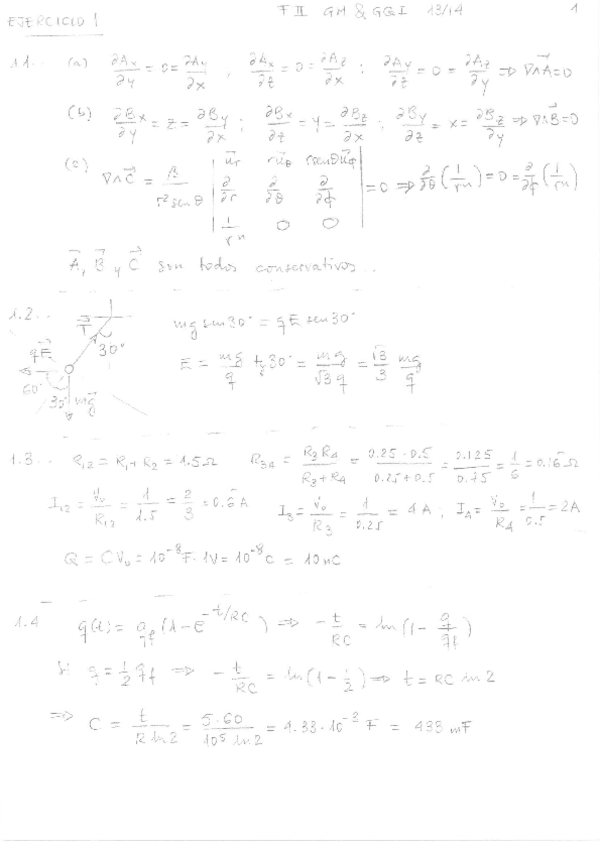 F II GM & GGI 13/14 1
EJERCICIO 1
1.1.. (a) ∂Ax/∂y = 0 = ∂Ay/∂x , ∂Ax/∂z = 0 = ∂Az/∂x ; ∂Ay/∂z = 0 = ∂Az/∂y ⇒ ∇∧A⃗ = 0
(b) ∂Bx/∂y = z = ∂By/∂x ; ∂Bx/∂z = y = ∂Bz/∂x ; ∂By/∂z = x = ∂Bz/∂y ⇒ ∇∧B⃗ = 0
(c) ∇∧C⃗ = /r² sen θ | u⃗r r u⃗θ r sen θ u⃗φ |
| ∂/∂r ∂/∂θ ∂/∂φ | = 0 ⇒ ∂/∂θ (1/rⁿ) = 0 = ∂/∂φ (1/rⁿ)
| 1/rⁿ 0 0 |
A⃗, B⃗ y C⃗ son todos conservativos..
1.2.. mg sen 30° = qE sen 30°
30°
qE⃗ E = mg/q tg 30° = mg/√3 q = √3/3 mg/q
60° 30° mg⃗
1.3.. R12 = R1 + R2 = 1.5 Ω R34 = R3 R4/R3 + R4 = 0.25 · 0.5/0.25 + 0.5 = 0.125/0.75 = 1/6 = 0.16 Ω
I12 = V0/R12 = 1/1.5 = 2/3 = 0.6 A I3 = V0/R3 = 1/0.25 = 4 A ; I4 = V0/R4 = 1/0.5 = 2A
Q = CV0 = 10⁻⁸ F · 1V = 10⁻⁸ C = 10 nC
1.4 q(t) = qf (1 - e^(-t/RC)) ⇒ - t/RC = ln (1 - q/qf)
Si q = 1/2 qf ⇒ - t/RC = ln (1 - 1/2) ⇒ t = RC ln 2
⇒ C = t/R ln 2 = 5·60/10⁵ ln 2 = 4.33·10⁻³ F = 433 mF